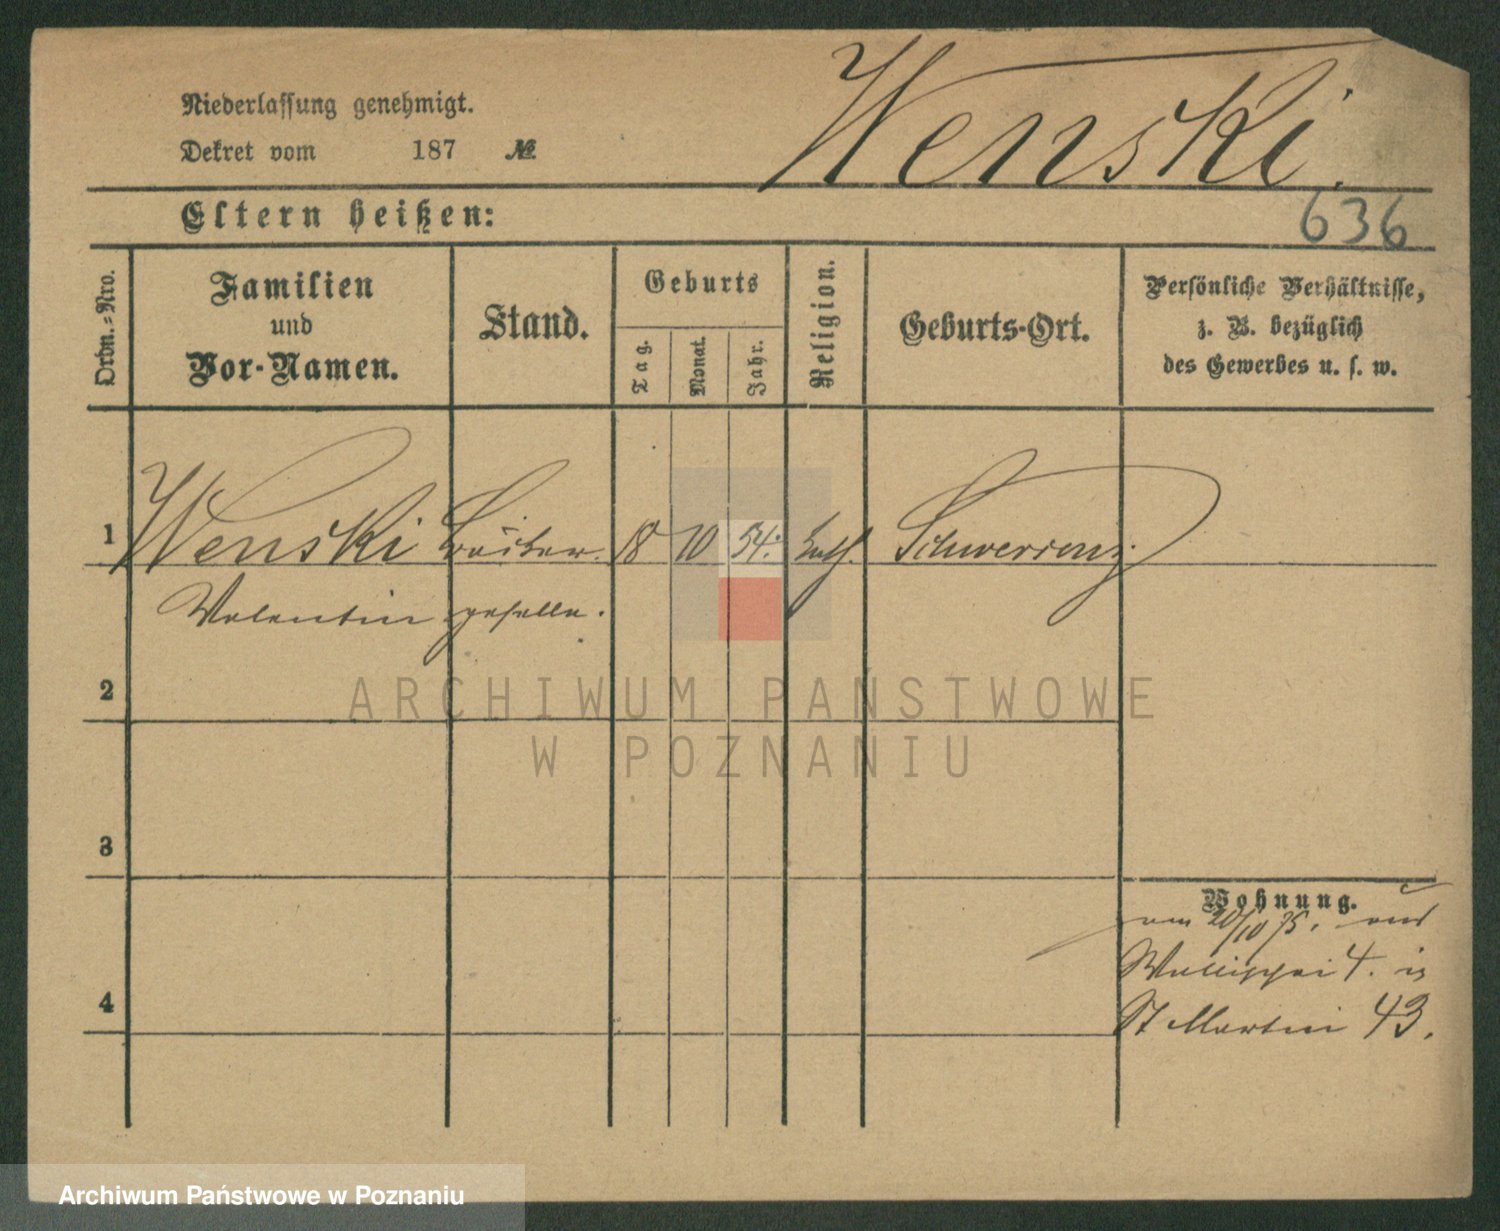 Niederlassung genehmigt.
Dekret vom 187 №
Wenski.
Eltern heißen:
636
Ordn.-Nro.
Familien
und
Vor-Namen.
Stand.
Geburts
Tag.
Monat.
Jahr.
Religion.
Geburts-Ort.
Persönliche Verhältnisse,
z. B. bezüglich
des Gewerbes u. s. w.
1 Wenski Bäcker 18 10 54. kath. Schwersenz.
Valentin geselle.
2
3
4
Wohnung.
20/10 75. aus
Wallischei 4. in
St Martin 43.
ARCHIWUM PAŃSTWOWE
W POZNANIU
Archiwum Państwowe w Poznaniu